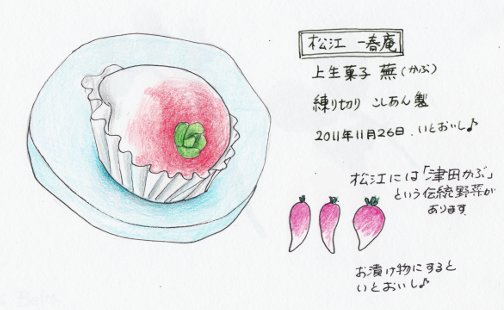 松江 一春庵
上生菓子 蕪(かぶ)
練り切り こしあん製
2011年11月26日 いとおいし♪
松江には「津田かぶ」
という伝統野菜が
あります
お漬け物にすると
いとおいし♪